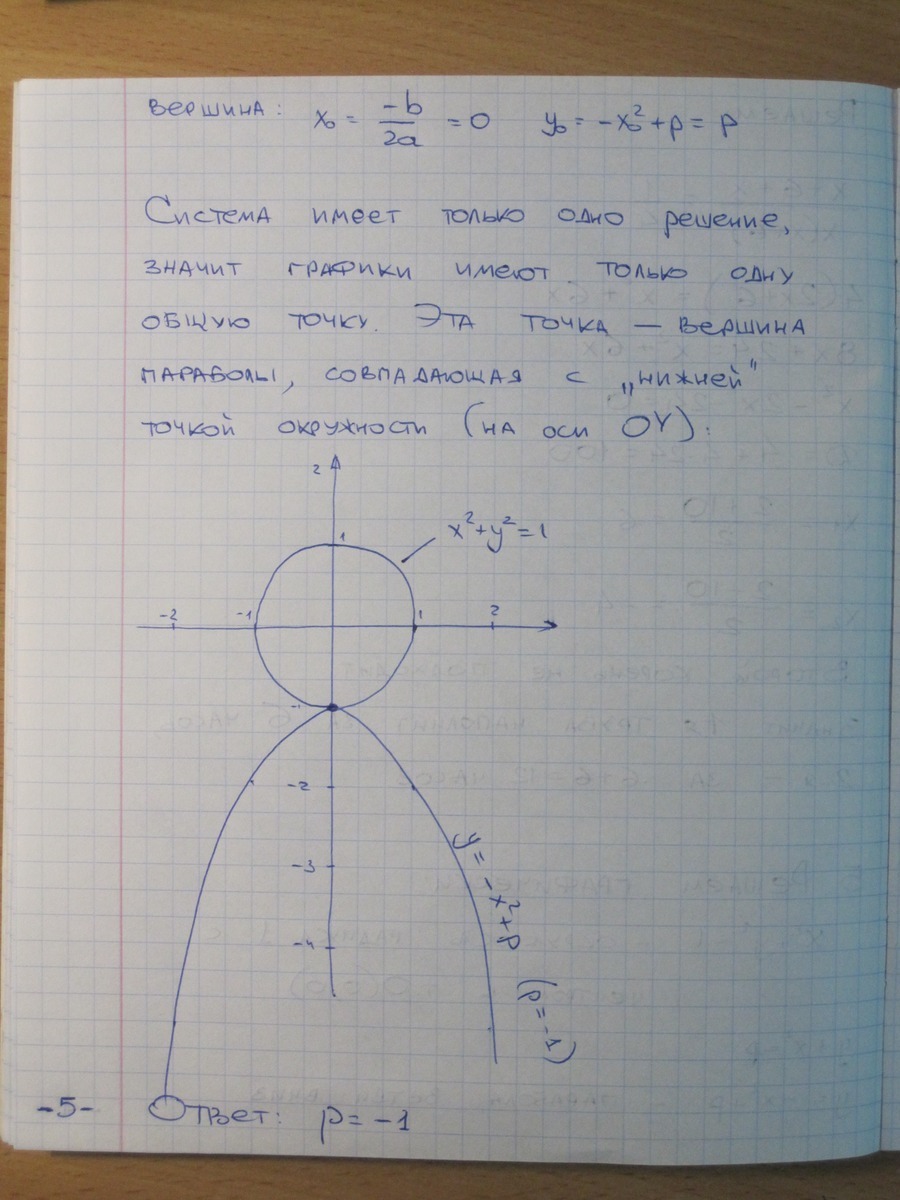 вершина: x₀ = -b/2a = 0 y₀ = -x₀² + p = p
Система имеет только одно решение,
значит графики имеют только одну
общую точку. Эта точка — вершина
параболы, совпадающая с „нижней"
точкой окружности (на оси OY):
2
1
x² + y² = 1
-2 -1 1 2
-1
-2
-3
-4
y = -x² + p (p = -1)
-5- Ответ: p = -1